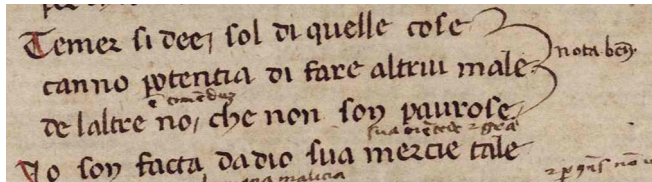 Temer si dee sol di quelle cose
canno potentia di fare altrui male
nota ben
de laltre no, che non son paurose
Io son facta dadio sua mercie tale